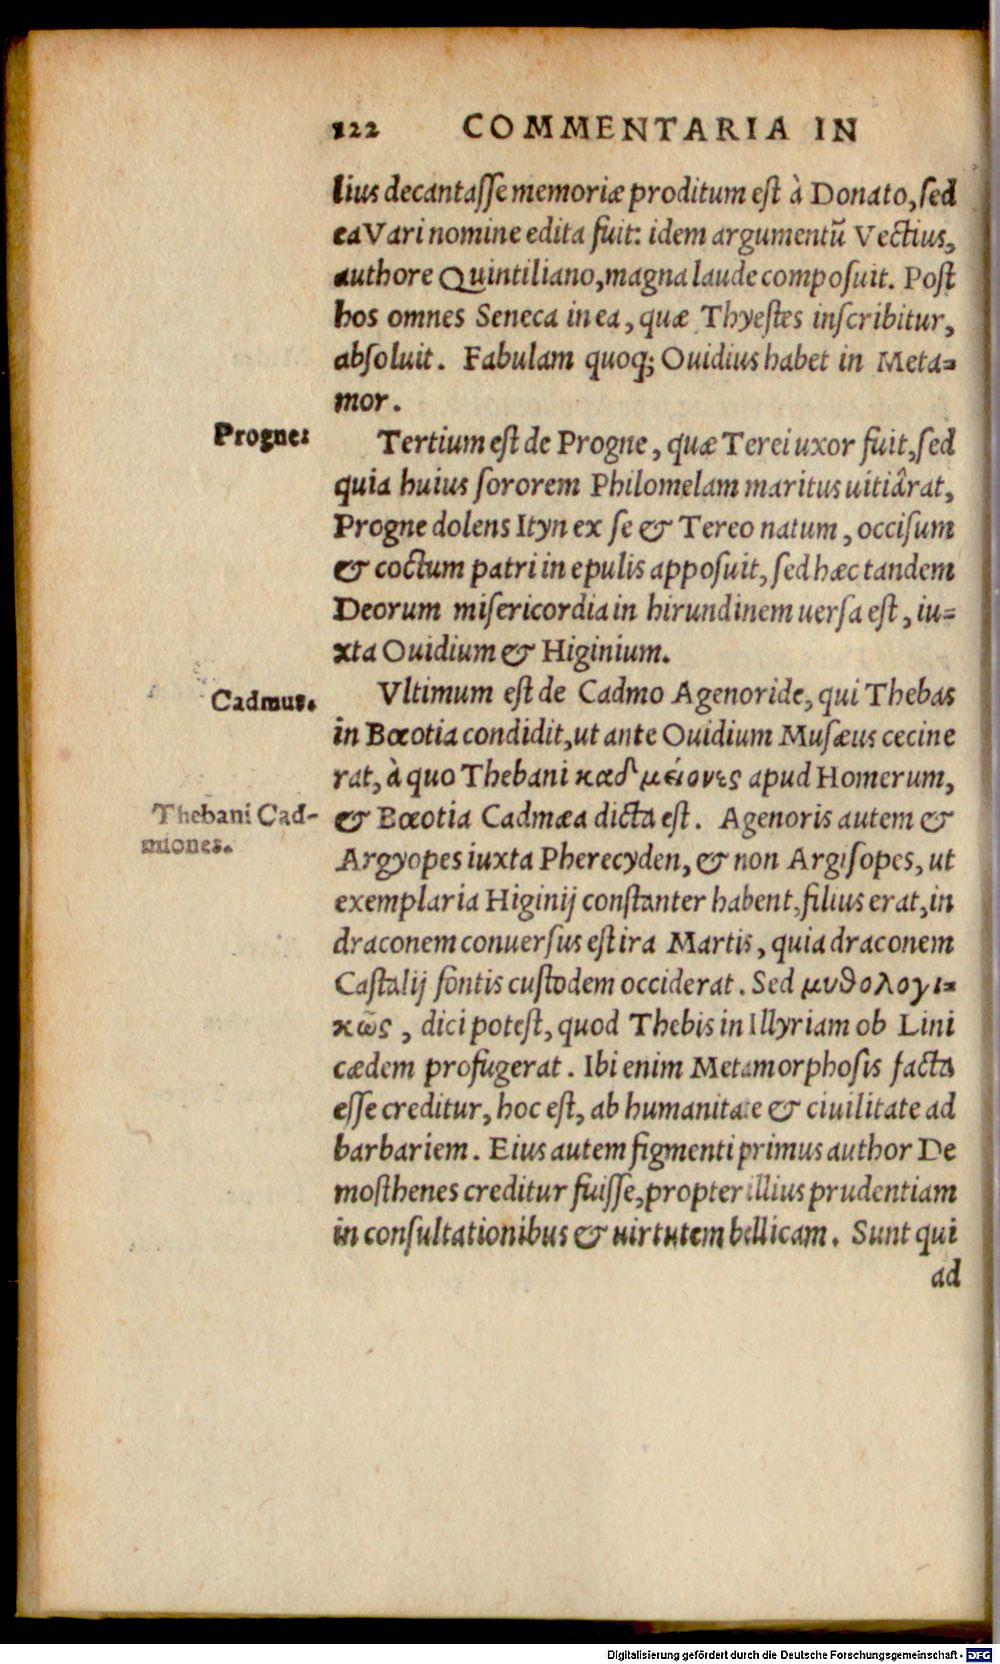 122 COMMENTARIA IN
lius decantasse memoriæ proditum est à Donato, sed
ea Vari nomine edita fuit: idem argumentũ Vectius,
authore Quintiliano, magna laude composuit. Post
hos omnes Seneca in ea, quæ Thyestes inscribitur,
absoluit. Fabulam quoq; Ouidius habet in Meta=
mor.
Progne:
Tertium est de Progne, quæ Terei uxor fuit, sed
quia huius sororem Philomelam maritus uitiârat,
Progne dolens Ityn ex se & Tereo natum, occisum
& coctum patri in epulis apposuit, sed hæc tandem
Deorum misericordia in hirundinem uersa est, iu=
xta Ouidium & Higinium.
Cadmus.
Vltimum est de Cadmo Agenoride, qui Thebas
in Bœotia condidit, ut ante Ouidium Musæus cecine
rat, à quo Thebani καδμείονες apud Homerum,
Thebani Cad-
miones.
& Bœotia Cadmæa dicta est. Agenoris autem &
Argyopes iuxta Pherecyden, & non Argisopes, ut
exemplaria Higinij constanter habent, filius erat, in
draconem conuersus est ira Martis, quia draconem
Castalij fontis custodem occiderat. Sed μυθολογι=
κῶς, dici potest, quod Thebis in Illyriam ob Lini
cædem profugerat. Ibi enim Metamorphosis facta
esse creditur, hoc est, ab humanitate & ciuilitate ad
barbariem. Eius autem figmenti primus author De
mosthenes creditur fuisse, propter illius prudentiam
in consultationibus & uirtutem bellicam. Sunt qui
ad
Digitalisierung gefördert durch die Deutsche Forschungsgemeinschaft - DFG